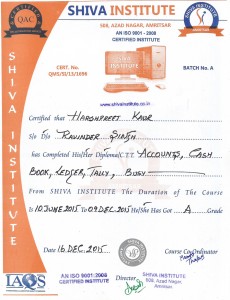 SHIVA INSTITUTE
508, AZAD NAGAR, AMRITSAR
AN ISO 9001 : 2008
CERTIFIED INSTITUTE
QAC
CERT. No.
QMS/SI/13/1698
BATCH No. A
www.shivainstitute.co.in
SHIVA INSTITUTE
Certified that HARSHPREET KAUR
S/o D/o RAVINDER SINGH
has Completed His/Her Diploma CTT ACCOUNTS, CASH
BOOK, LEDGER, TALLY, BUSY
From SHIVA INSTITUTE The Duration of The Course
is 10 JUNE 2015 To 09 DEC 2015 He/She Has Got A Grade
Date 16 DEC. 2015
Course Co-Ordinator
IAQS
AN ISO 9001:2008
CERTIFIED INSTITUTE
Director
SHIVA INSTITUTE
508, Azad Nagar,
Amritsar